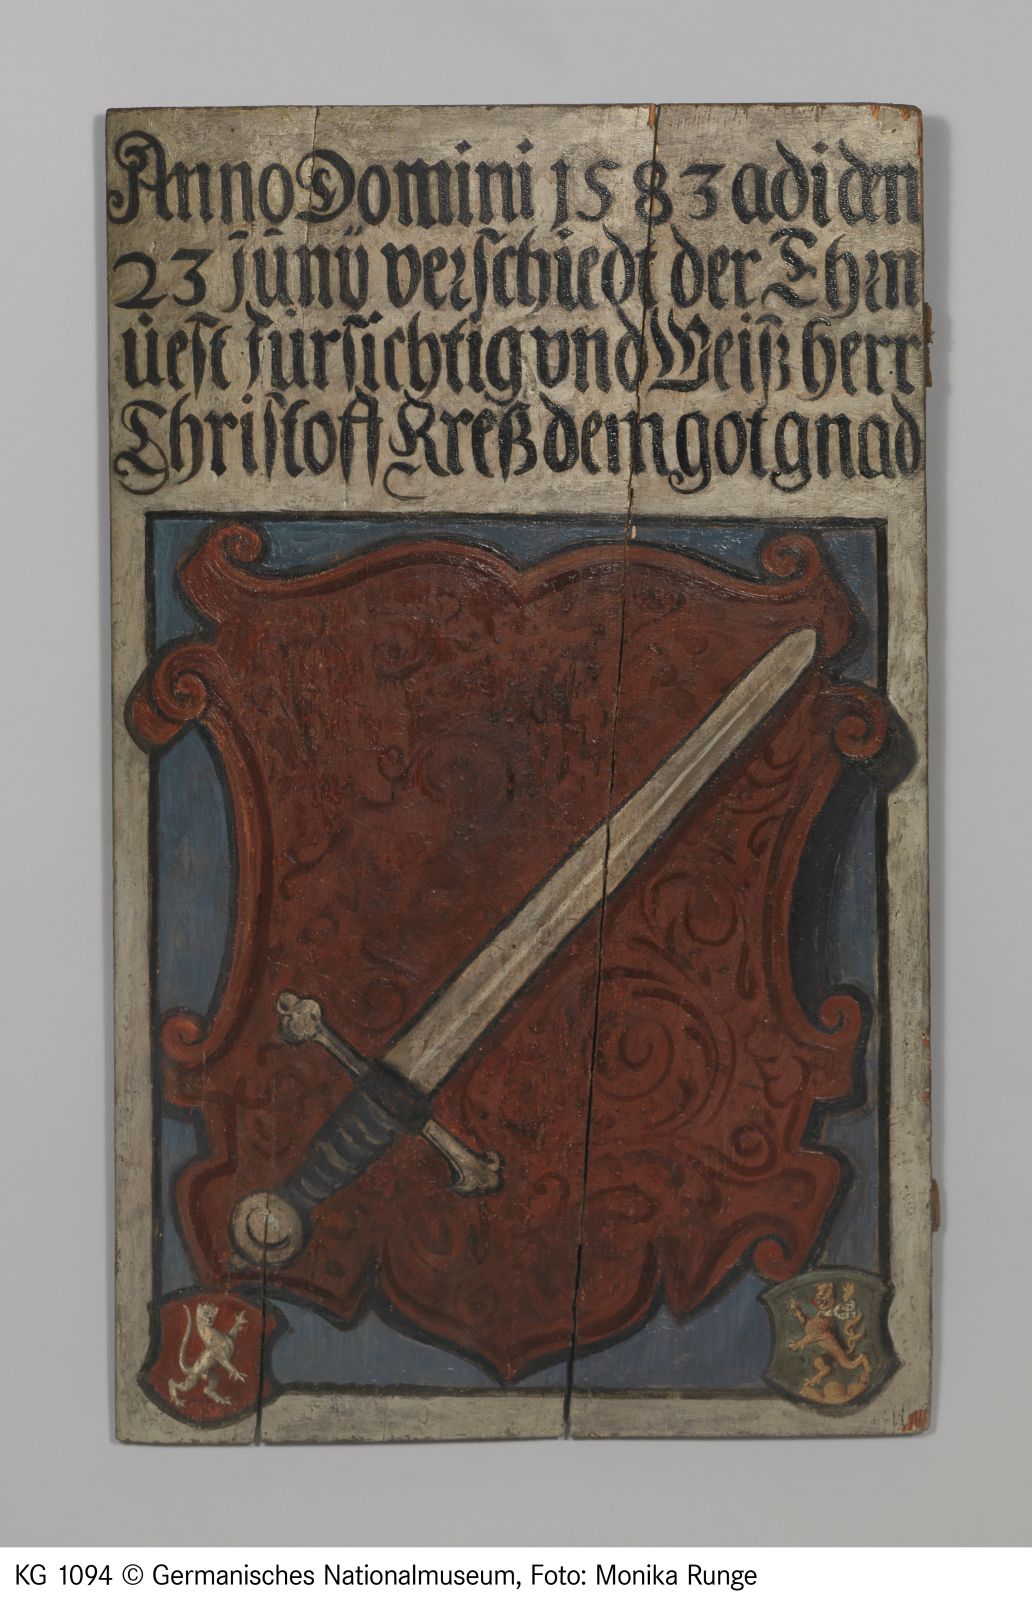 Anno Domini 1583 adi dn
23 Junÿ verschiedt der Ehrn
üest fürsichtig vnd Weiß herr
Christoff Kreß dem got gnad
KG 1094 © Germanisches Nationalmuseum, Foto: Monika Runge